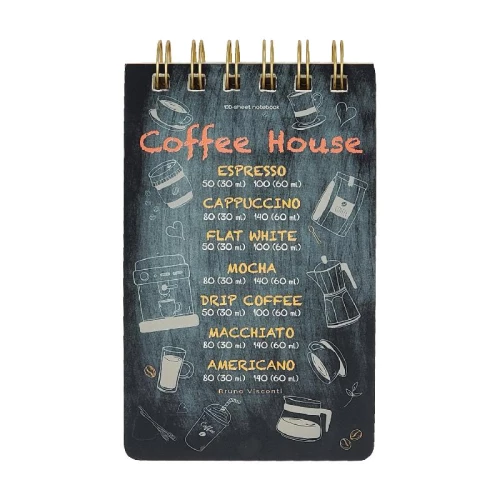 100-sheet notebook
Coffee House
ESPRESSO
50 (30 ml) 100 (60 ml)
CAPPUCCINO
80 (30 ml) 140 (60 ml)
FLAT WHITE
50 (30 ml) 100 (60 ml)
MOCHA
80 (30 ml) 140 (60 ml)
DRIP COFFEE
50 (30 ml) 100 (60 ml)
MACCHIATO
80 (30 ml) 140 (60 ml)
AMERICANO
80 (30 ml) 140 (60 ml)
Bruno Visconti
Coffee